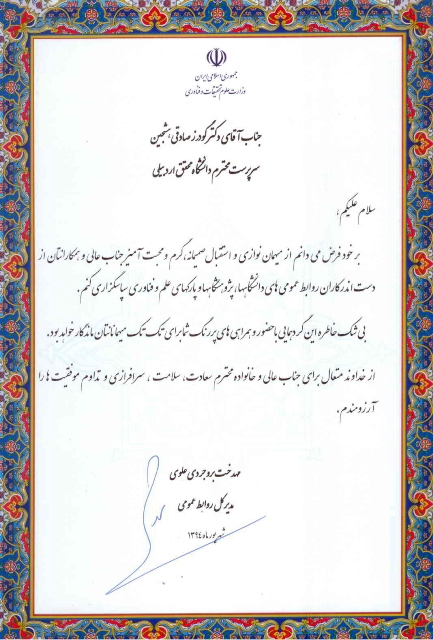 جمهوری اسلامی ایران
وزارت علوم تحقیقات و فناوری
جناب آقای دکتر گودرز صادقی هشجین
سرپرست محترم دانشگاه محقق اردبیلی
سلام علیکم؛
بر خود فرض می دانم از میهمان نوازی و استقبال صمیمانه، گرم و محبت آمیز جناب عالی و همکارانتان از
دست اندرکاران روابط عمومی های دانشگاهها، پژوهشگاهها و پارکهای علم و فناوری سپاسگزاری کنم.
بی شک خاطره این گردهمایی با حضور و همراهی های پررنگ شما برای تک تک میهمانانتان ماندگار خواهد بود.
از خداوند متعال برای جناب عالی و خانواده محترم سعادت، سلامت، سرافرازی و تداوم موفقیت ها را
آرزومندم.
مهدخت بروجردی علوی
مدیر کل روابط عمومی
شهریور ماه ۱۳۹۴